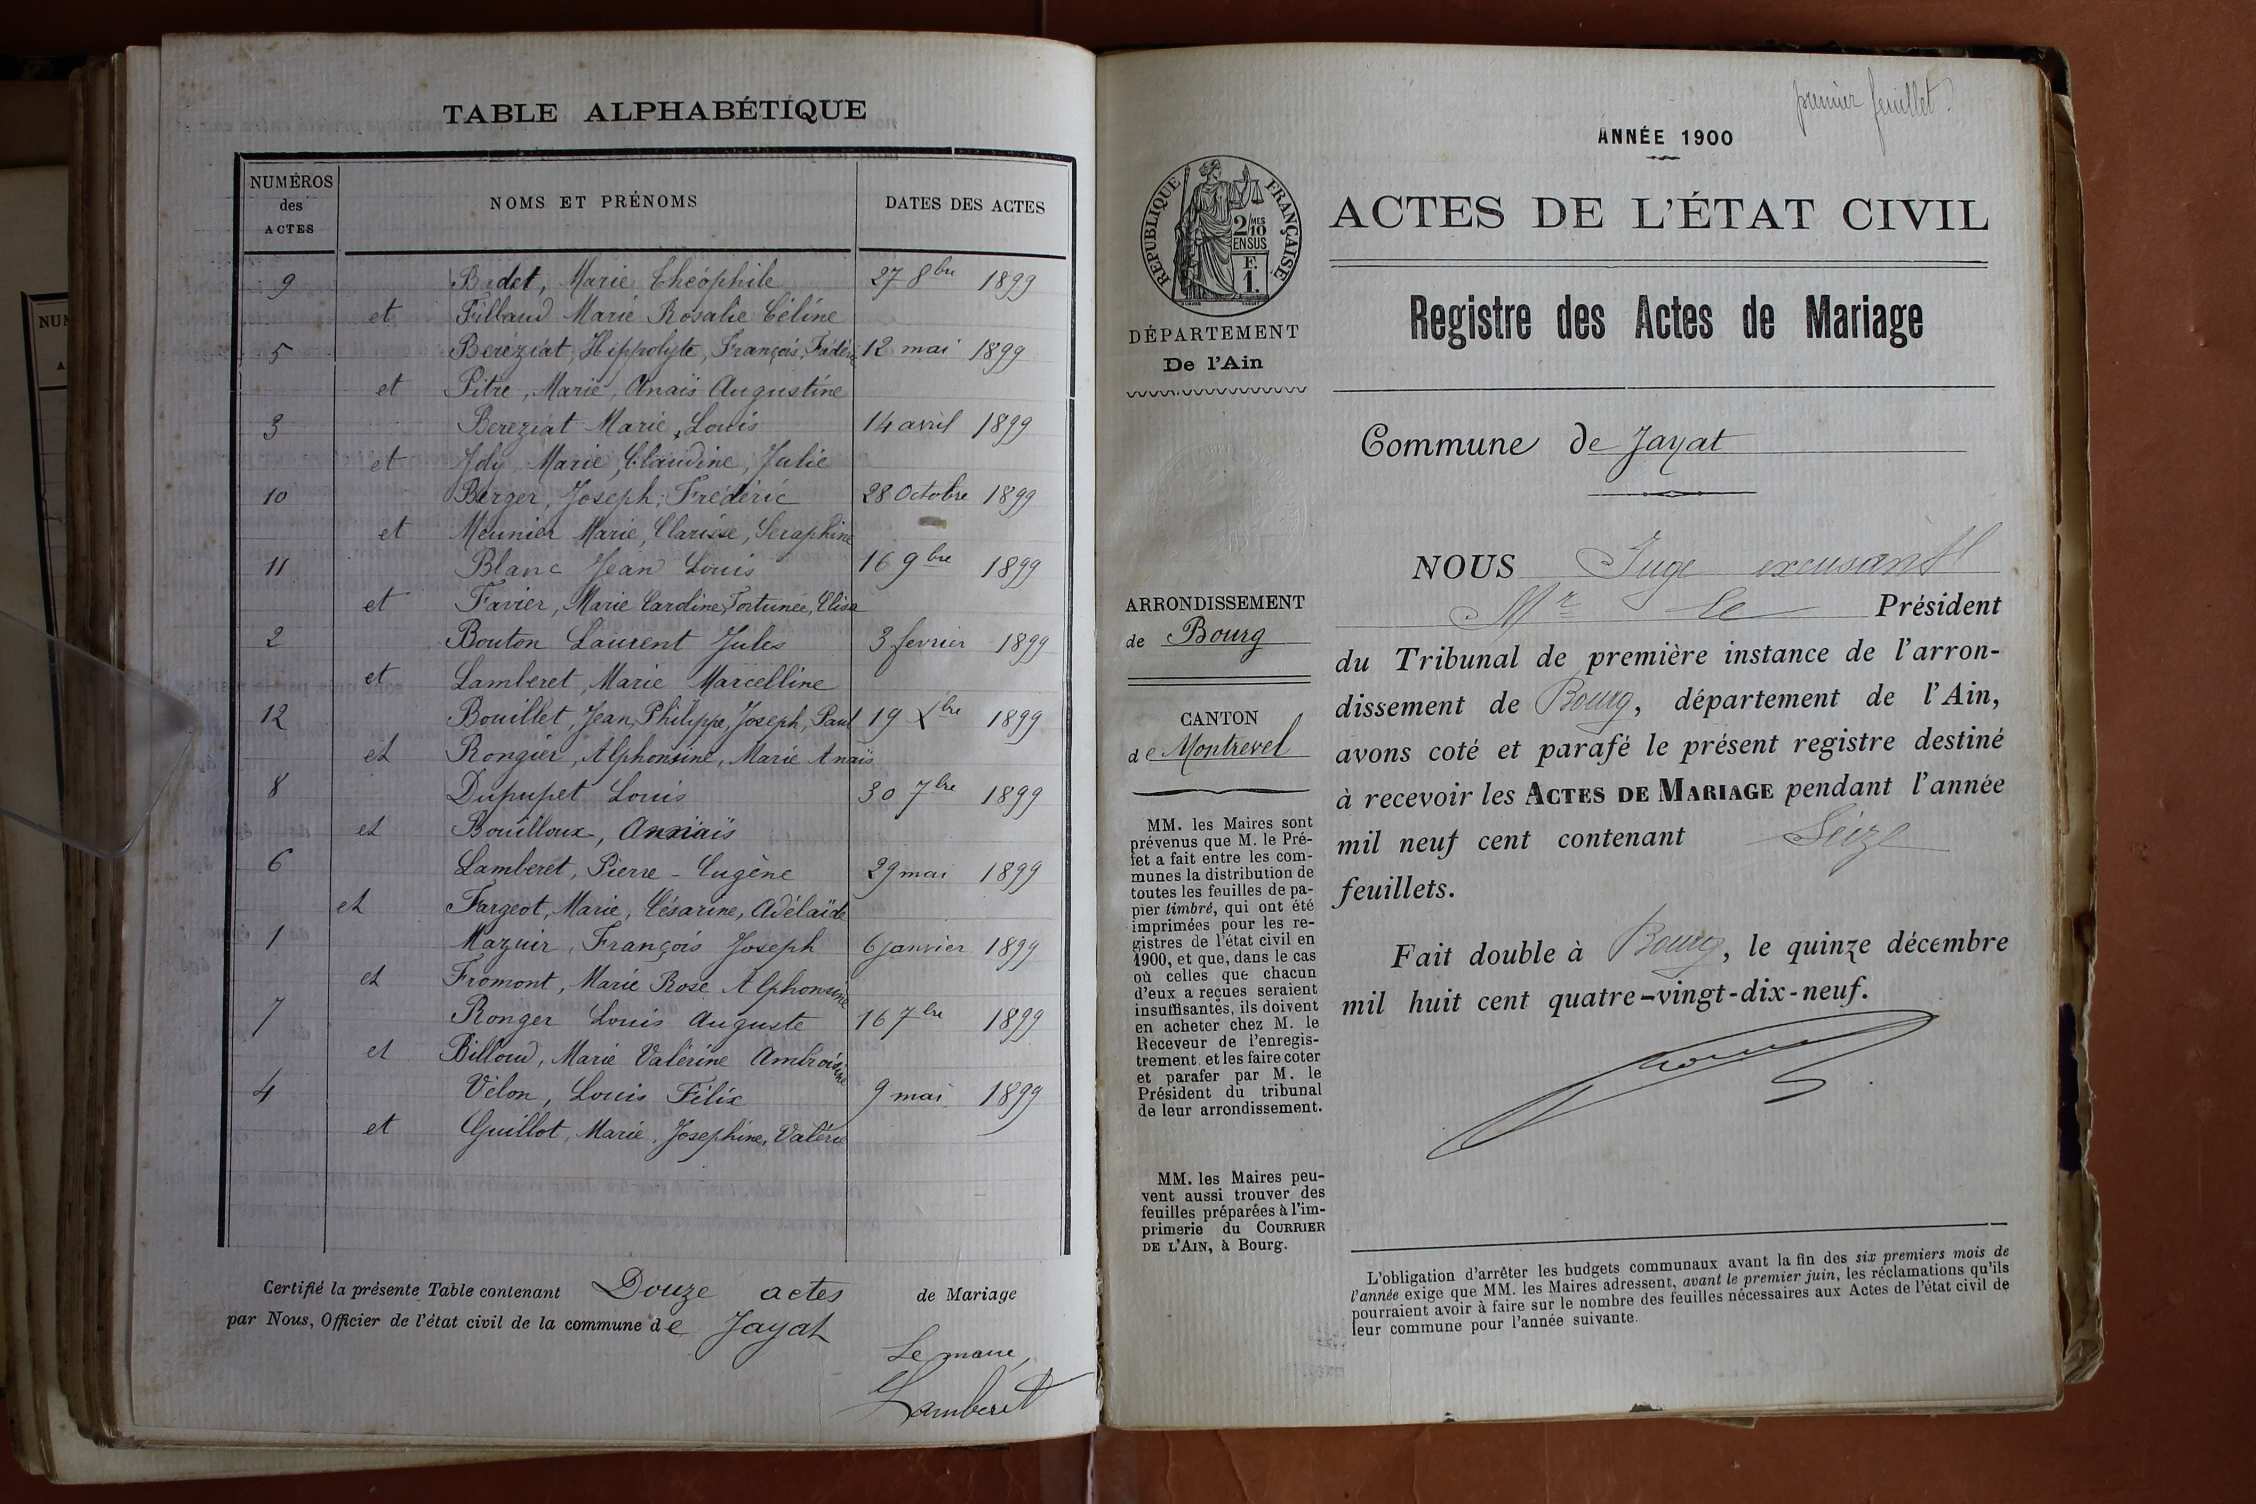 TABLE ALPHABÉTIQUE
NUMÉROS des ACTES
NOMS ET PRÉNOMS
DATES DES ACTES
9 Badet, Marie Théophile 27 8bre 1899
et Fillaud Marie Rosalie Céline
5 Béréziat, Hippolyte, François, Frédéric 12 mai 1899
et Pitre, Marie, Anaïs Augustine
3 Béréziat Marie, Louis 14 avril 1899
et Joly Marie, Claudine, Julie
10 Berger, Joseph, Frédéric 28 Octobre 1899
et Meunier Marie, Clarisse, Séraphine
11 Blanc Jean Louis 16 9bre 1899
et Favier, Marie Caroline, Fortunée, Elisa
2 Bouton Laurent Jules 3 fevrier 1899
et Lamberet, Marie Marcelline
12 Bouillet, Jean, Philippe, Joseph, Paul 19 Xbre 1899
et Rongier, Alphonsine, Marie Anaïs
8 Dupupet Louis 30 7bre 1899
et Bouilloux, Annaïs
6 Lamberet, Pierre - Eugène 29 mai 1899
et Fargeot, Marie, Césarine, Adélaïde
1 Mazuir, François Joseph 6 janvier 1899
et Fromont, Marie Rose Alphonsine
7 Ronger Louis Auguste 16 7bre 1899
et Billoud, Marie Valérine Ambroisine
4 Vélon, Louis Félix 9 mai 1899
et Guillot, Marie, Josephine, Valérie
Certifié la présente Table contenant Douze actes de Mariage
par Nous, Officier de l'état civil de la commune de Jayat
Le maire,
Lamberet
premier feuillet.
ANNÉE 1900
RÉPUBLIQUE FRANÇAISE
2/10 MES
EN SUS
F. 1.
DÉPARTEMENT
De l'Ain
ARRONDISSEMENT
de Bourg
CANTON
de Montrevel
MM. les Maires sont
prévenus que M. le Pré-
fet a fait entre les com-
munes la distribution de
toutes les feuilles de pa-
pier timbré, qui ont été
imprimées pour les re-
gistres de l'état civil en
1900, et que, dans le cas
où celles que chacun
d'eux a reçues seraient
insuffisantes, ils doivent
en acheter chez M. le
Receveur de l'enregis-
trement et les faire coter
et parafer par M. le
Président du tribunal
de leur arrondissement.
MM. les Maires peu-
vent aussi trouver des
feuilles préparées à l'im-
primerie du COURRIER
DE L'AIN, à Bourg.
ACTES DE L'ÉTAT CIVIL
Registre des Actes de Mariage
Commune de Jayat
NOUS Juge excusant
Mr le Président
du Tribunal de première instance de l'arron-
dissement de Bourg, département de l'Ain,
avons coté et parafé le présent registre destiné
à recevoir les ACTES DE MARIAGE pendant l'année
mil neuf cent contenant Seize
feuillets.
Fait double à Bourg, le quinze décembre
mil huit cent quatre-vingt-dix-neuf.
L'obligation d'arrêter les budgets communaux avant la fin des six premiers mois de
l'année exige que MM. les Maires adressent, avant le premier juin, les réclamations qu'ils
pourraient avoir à faire sur le nombre des feuilles nécessaires aux Actes de l'état civil de
leur commune pour l'année suivante.